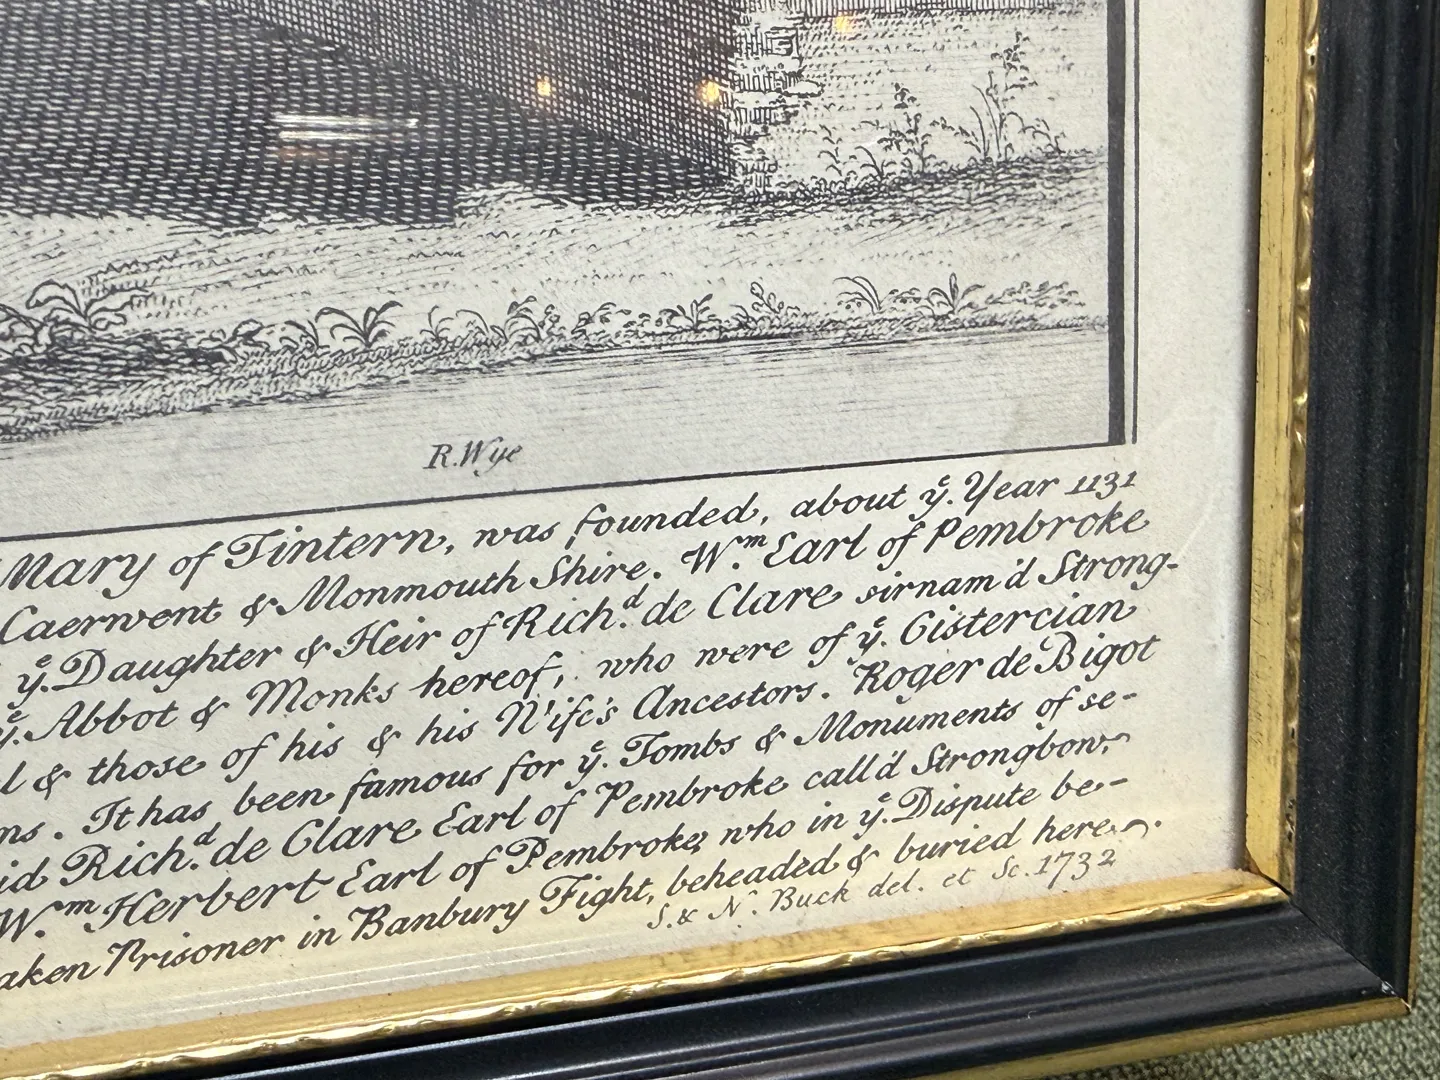 R. Wye
Mary of Tintern, was founded, about yͤ. Year 1131
Caerwent & Monmouth Shire. Wᵐ. Earl of Pembroke
yͤ. Daughter & Heir of Richᵈ. de Clare sirnam'd Strong-
yͤ. Abbot & Monks hereof, who were of yͤ. Cistercian
l & those of his & his Wife's Ancestors. Roger de Bigot
ns. It has been famous for yͤ. Tombs & Monuments of se-
id Richᵈ. de Clare Earl of Pembroke call'd Strongbow,
Wᵐ. Herbert Earl of Pembroke, who in yͤ. Dispute be-
aken Prisoner in Banbury Fight, beheaded & buried here.
S. & N. Buck del. et Sc. 1732